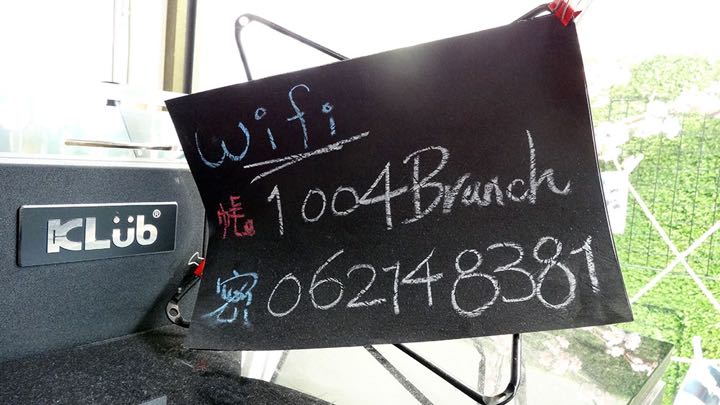 KLüb®
wifi
帳 1004Branch
密 062148381